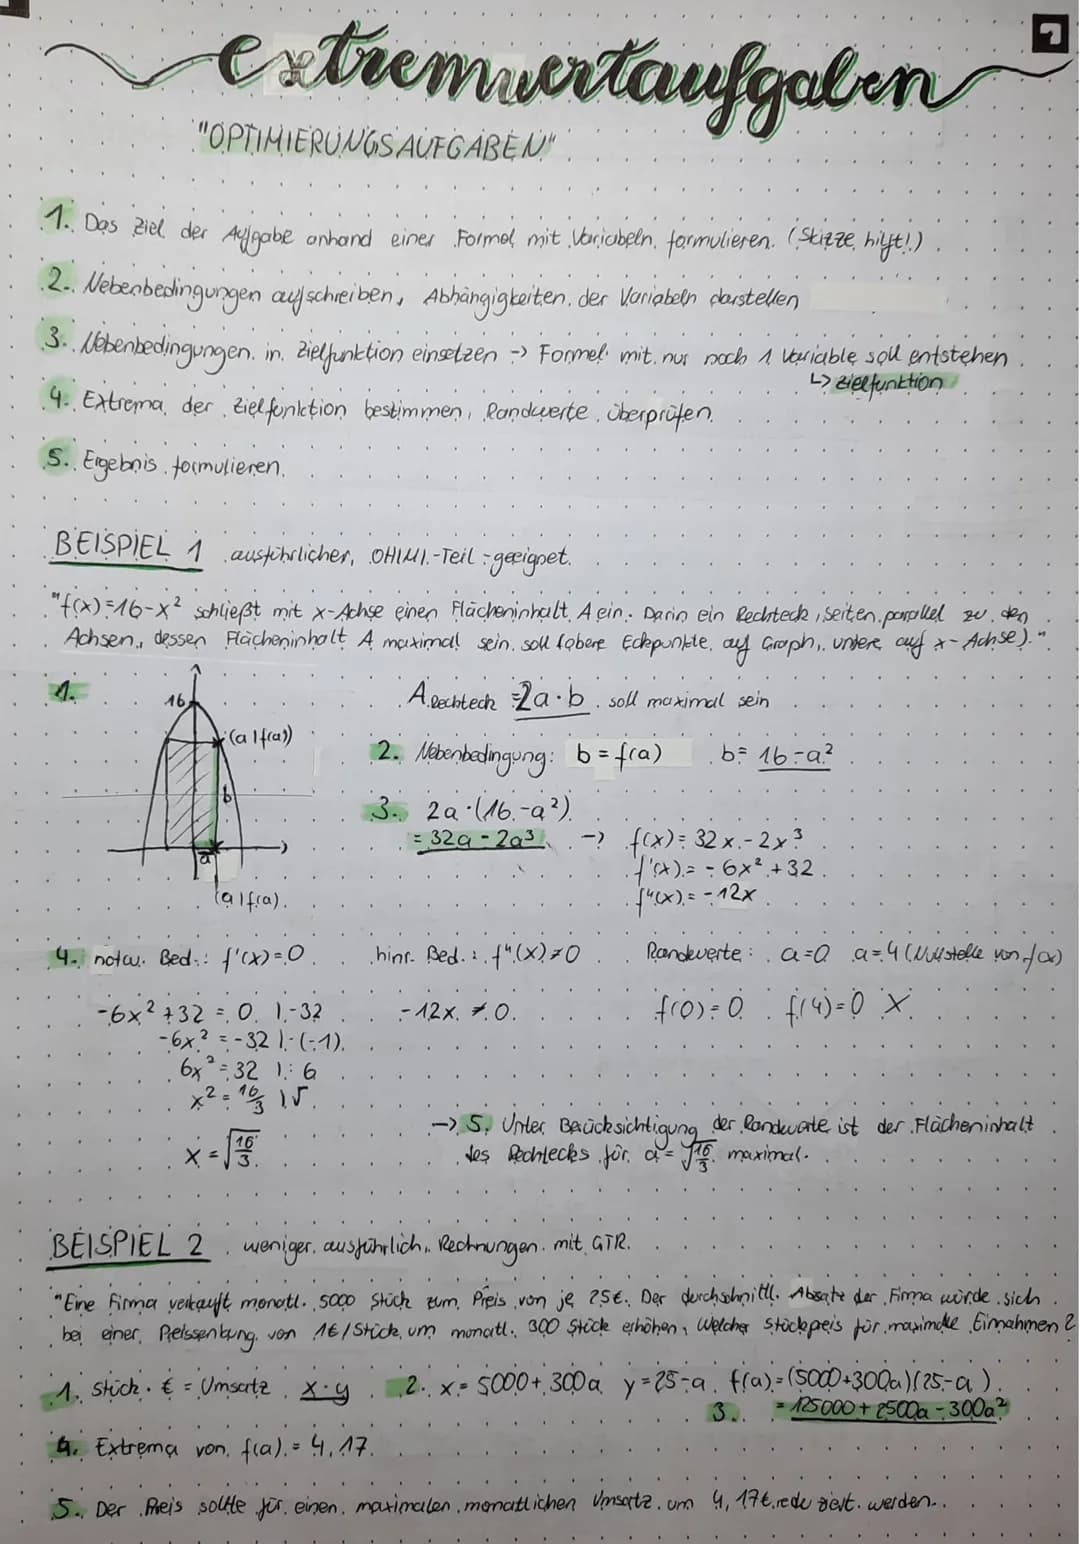 extremwertaufgaben
1
"OPTIMIERUNGSAUFGABEN"
1. Das Ziel der Aufgabe anhand einer Formel mit Variabeln formulieren. (Skizze hilft!)
2. Nebenbedingungen aufschreiben, Abhängigkeiten der Variabeln darstellen
3. Nebenbedingungen in Zielfunktion einsetzen -> Formel mit nur noch 1 Variable soll entstehen
↳ Zielfunktion
4. Extrema der Zielfunktion bestimmen, Randwerte überprüfen.
5. Ergebnis formulieren.
BEISPIEL 1 ausführlicher, OHIMI-Teil-geeignet.
"f(x)=16-x² schließt mit x-Achse einen Flächeninhalt A ein. Darin ein Rechteck, Seiten parallel zu den
Achsen, dessen Flächeninhalt A maximal sein soll (obere Eckpunkte auf Graph, untere auf x-Achse)."
1.
16
(a|f(a))
b
a
(a|f(a).
A Rechteck = 2a·b soll maximal sein
2. Nebenbedingung: b = f(a) b = 16-a²
3. 2a·(16-a²)
= 32a - 2a³ -> f(x) = 32x - 2x³
f'(x) = -6x² + 32
f"(x) = -12x
4. notw. Bed.: f'(x)=0 hinr. Bed.: f"(x)≠0 Randwerte: a=0 a=4 (Nullstelle von f(x))
-6x² + 32 = 0 |-32 -12x ≠ 0 f(0)=0 f(4)=0 X
-6x² = -32 |·(-1)
6x² = 32 |:6
x² = 16/3 |√
x = √16/3
-> 5. Unter Berücksichtigung der Randwerte ist der Flächeninhalt
des Rechtecks für a = √16/3 maximal.
BEISPIEL 2 weniger ausführlich, Rechnungen mit GTR.
"Eine Firma verkauft monatl. 5000 Stück zum Preis von je 25€. Der durchschnittl. Absatz der Firma würde sich
bei einer Preissenkung von 1€/Stück um monatl. 300 Stück erhöhen. Welcher Stückpreis für maximale Einnahmen?
1. Stück · € = Umsatz x·y 2. x = 5000+300a y=25-a f(a)=(5000+300a)(25-a)
3. = 125000 + 2500a - 300a²
4. Extrema von f(a) = 4,17.
5. Der Preis sollte für einen maximalen monatlichen Umsatz um 4,17€ reduziert werden.